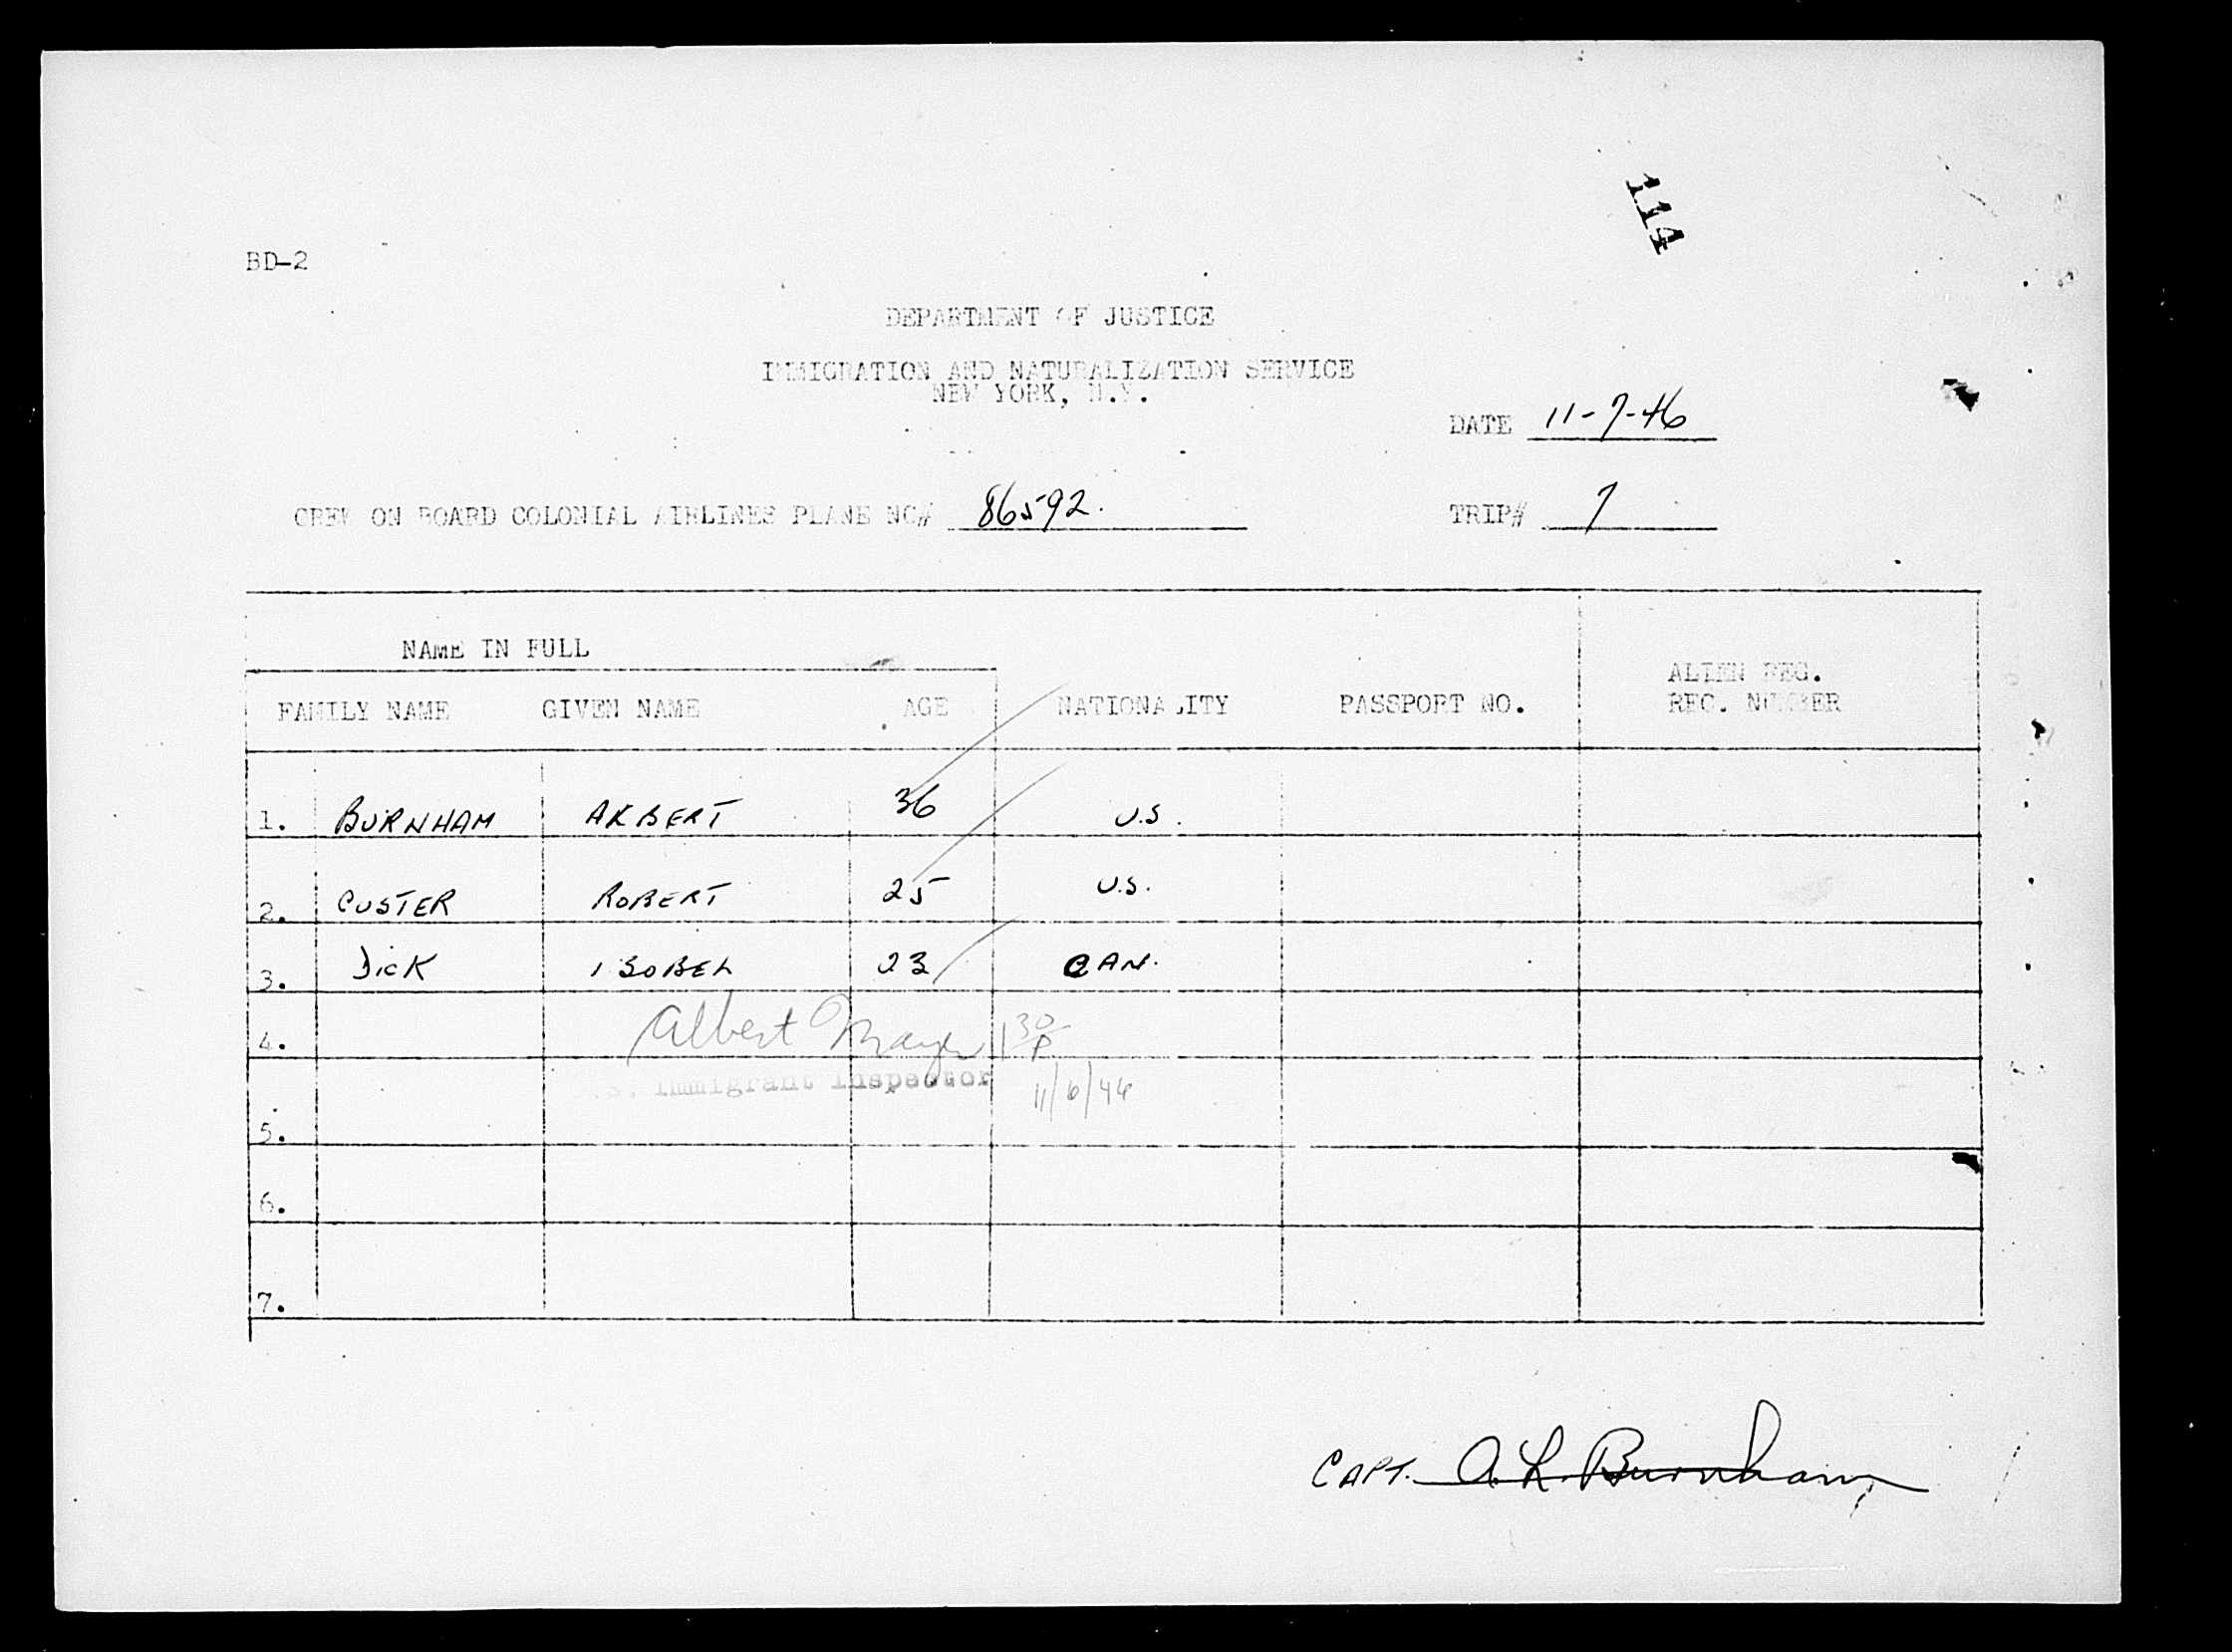 114
BD-2
DEPARTMENT OF JUSTICE
IMMIGRATION AND NATURALIZATION SERVICE
NEW YORK, N.Y.
DATE 11-7-46
CREW ON BOARD COLONIAL AIRLINES PLANE NO# 86592.
TRIP# 7
NAME IN FULL
FAMILY NAME GIVEN NAME AGE NATIONALITY PASSPORT NO. ALIEN REG. REC. NUMBER
1. BURNHAM ALBERT 36 U.S.
2. CUSTER ROBERT 25 U.S.
3. DICK ISOBEL 23 CAN.
4. Albert Mayer 1 30 P
Immigrant Inspector 11/6/46
5.
6.
7.
CAPT. A. L. Burnham